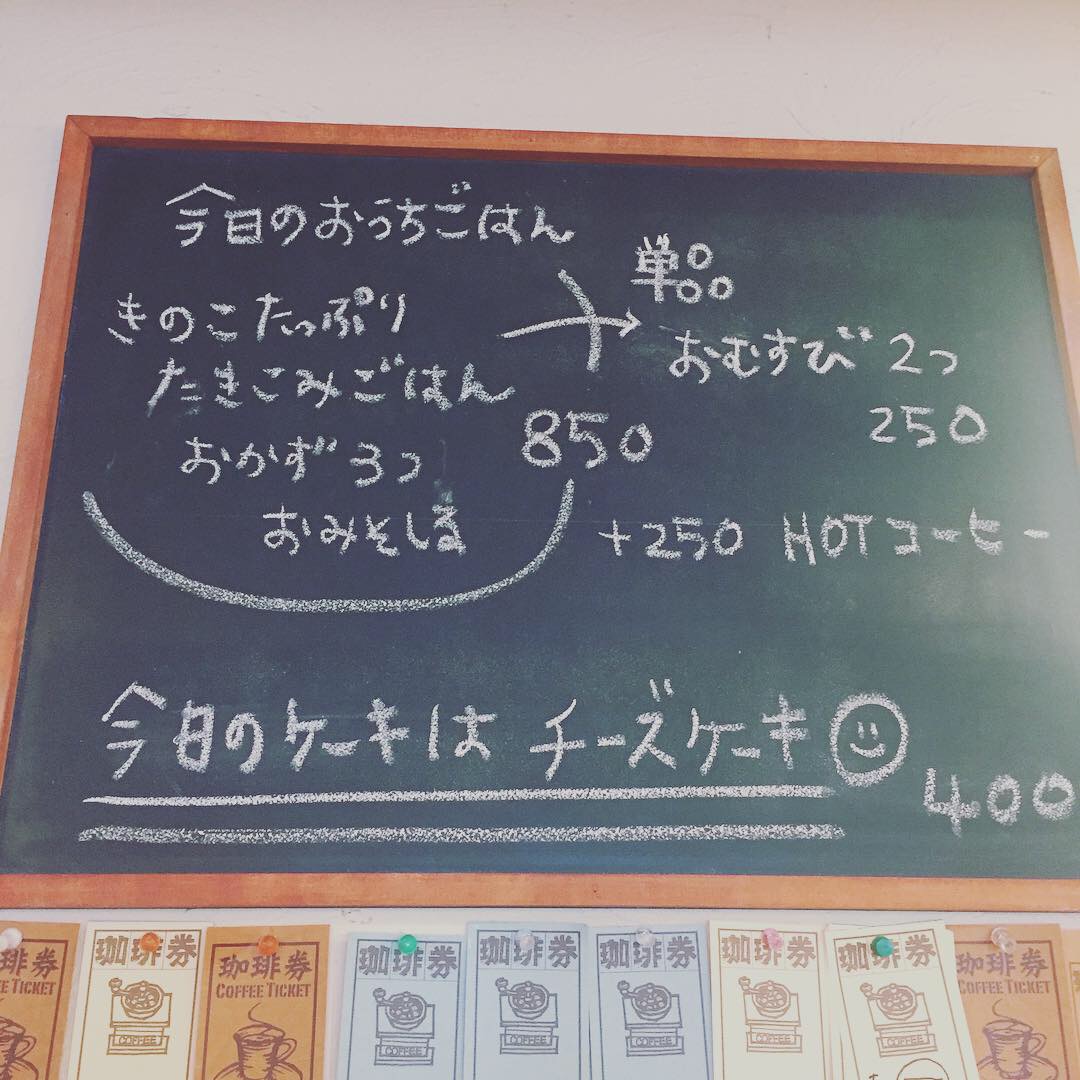 今日のおうちごはん
きのこたっぷり
たきこみごはん
おかず3つ
おみそしる
850
単品
おむすび2つ
250
+250 HOTコーヒー
今日のケーキは チーズケーキ
400
珈琲券
COFFEE TICKET
珈琲券
COFFEE
珈琲券
COFFEE TICKET
珈琲券
COFFEE
珈琲券
COFFEE
珈琲券
COFFEE
珈琲券
COFFEE
珈琲券
COFFEE
珈琲券
COFFEE TICKET